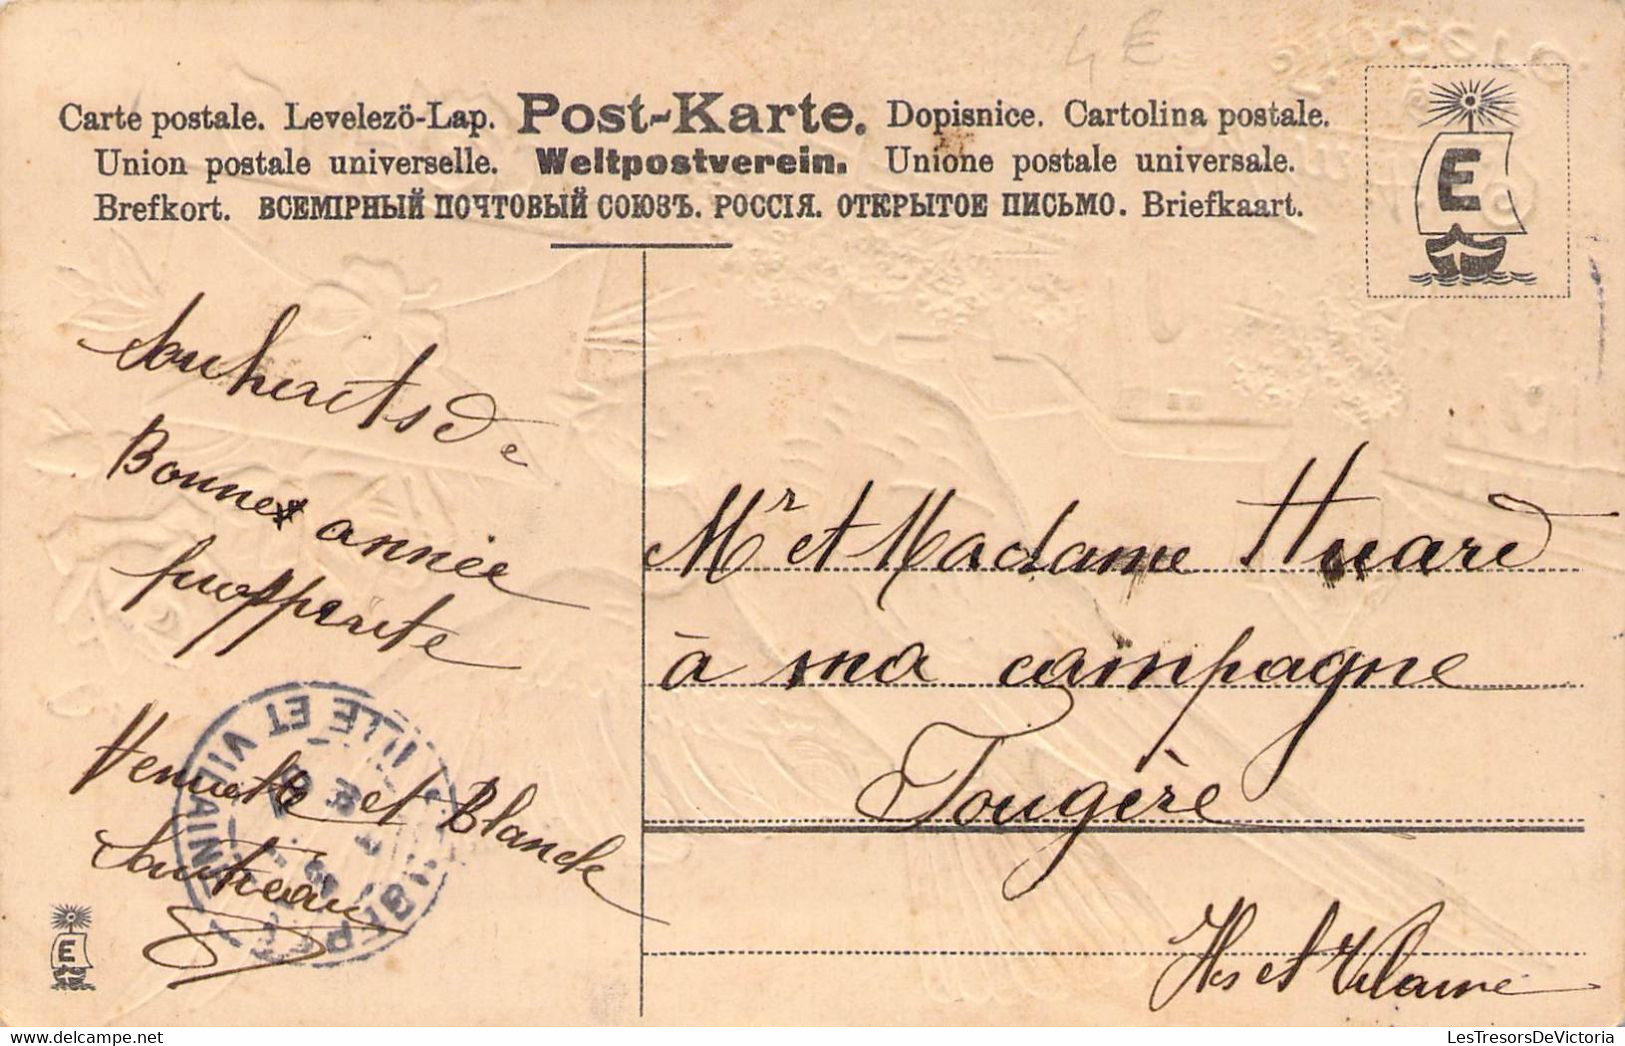 4 €
Carte postale. Levelezö-Lap. Post-Karte. Dopisnice. Cartolina postale.
Union postale universelle. Weltpostverein. Unione postale universale.
Brefkort. ВСЕМІРНЫЙ ПОЧТОВЫЙ СОЮЗЪ. РОССІЯ. ОТКРЫТОЕ ПИСЬМО. Briefkaart.
E
Souhaits de
Bonne année
Mr et Madame Huard
à ma campagne
Fougère
et Blanche
ILLE ET VILAINE
E
LesTresorsDeVictoria